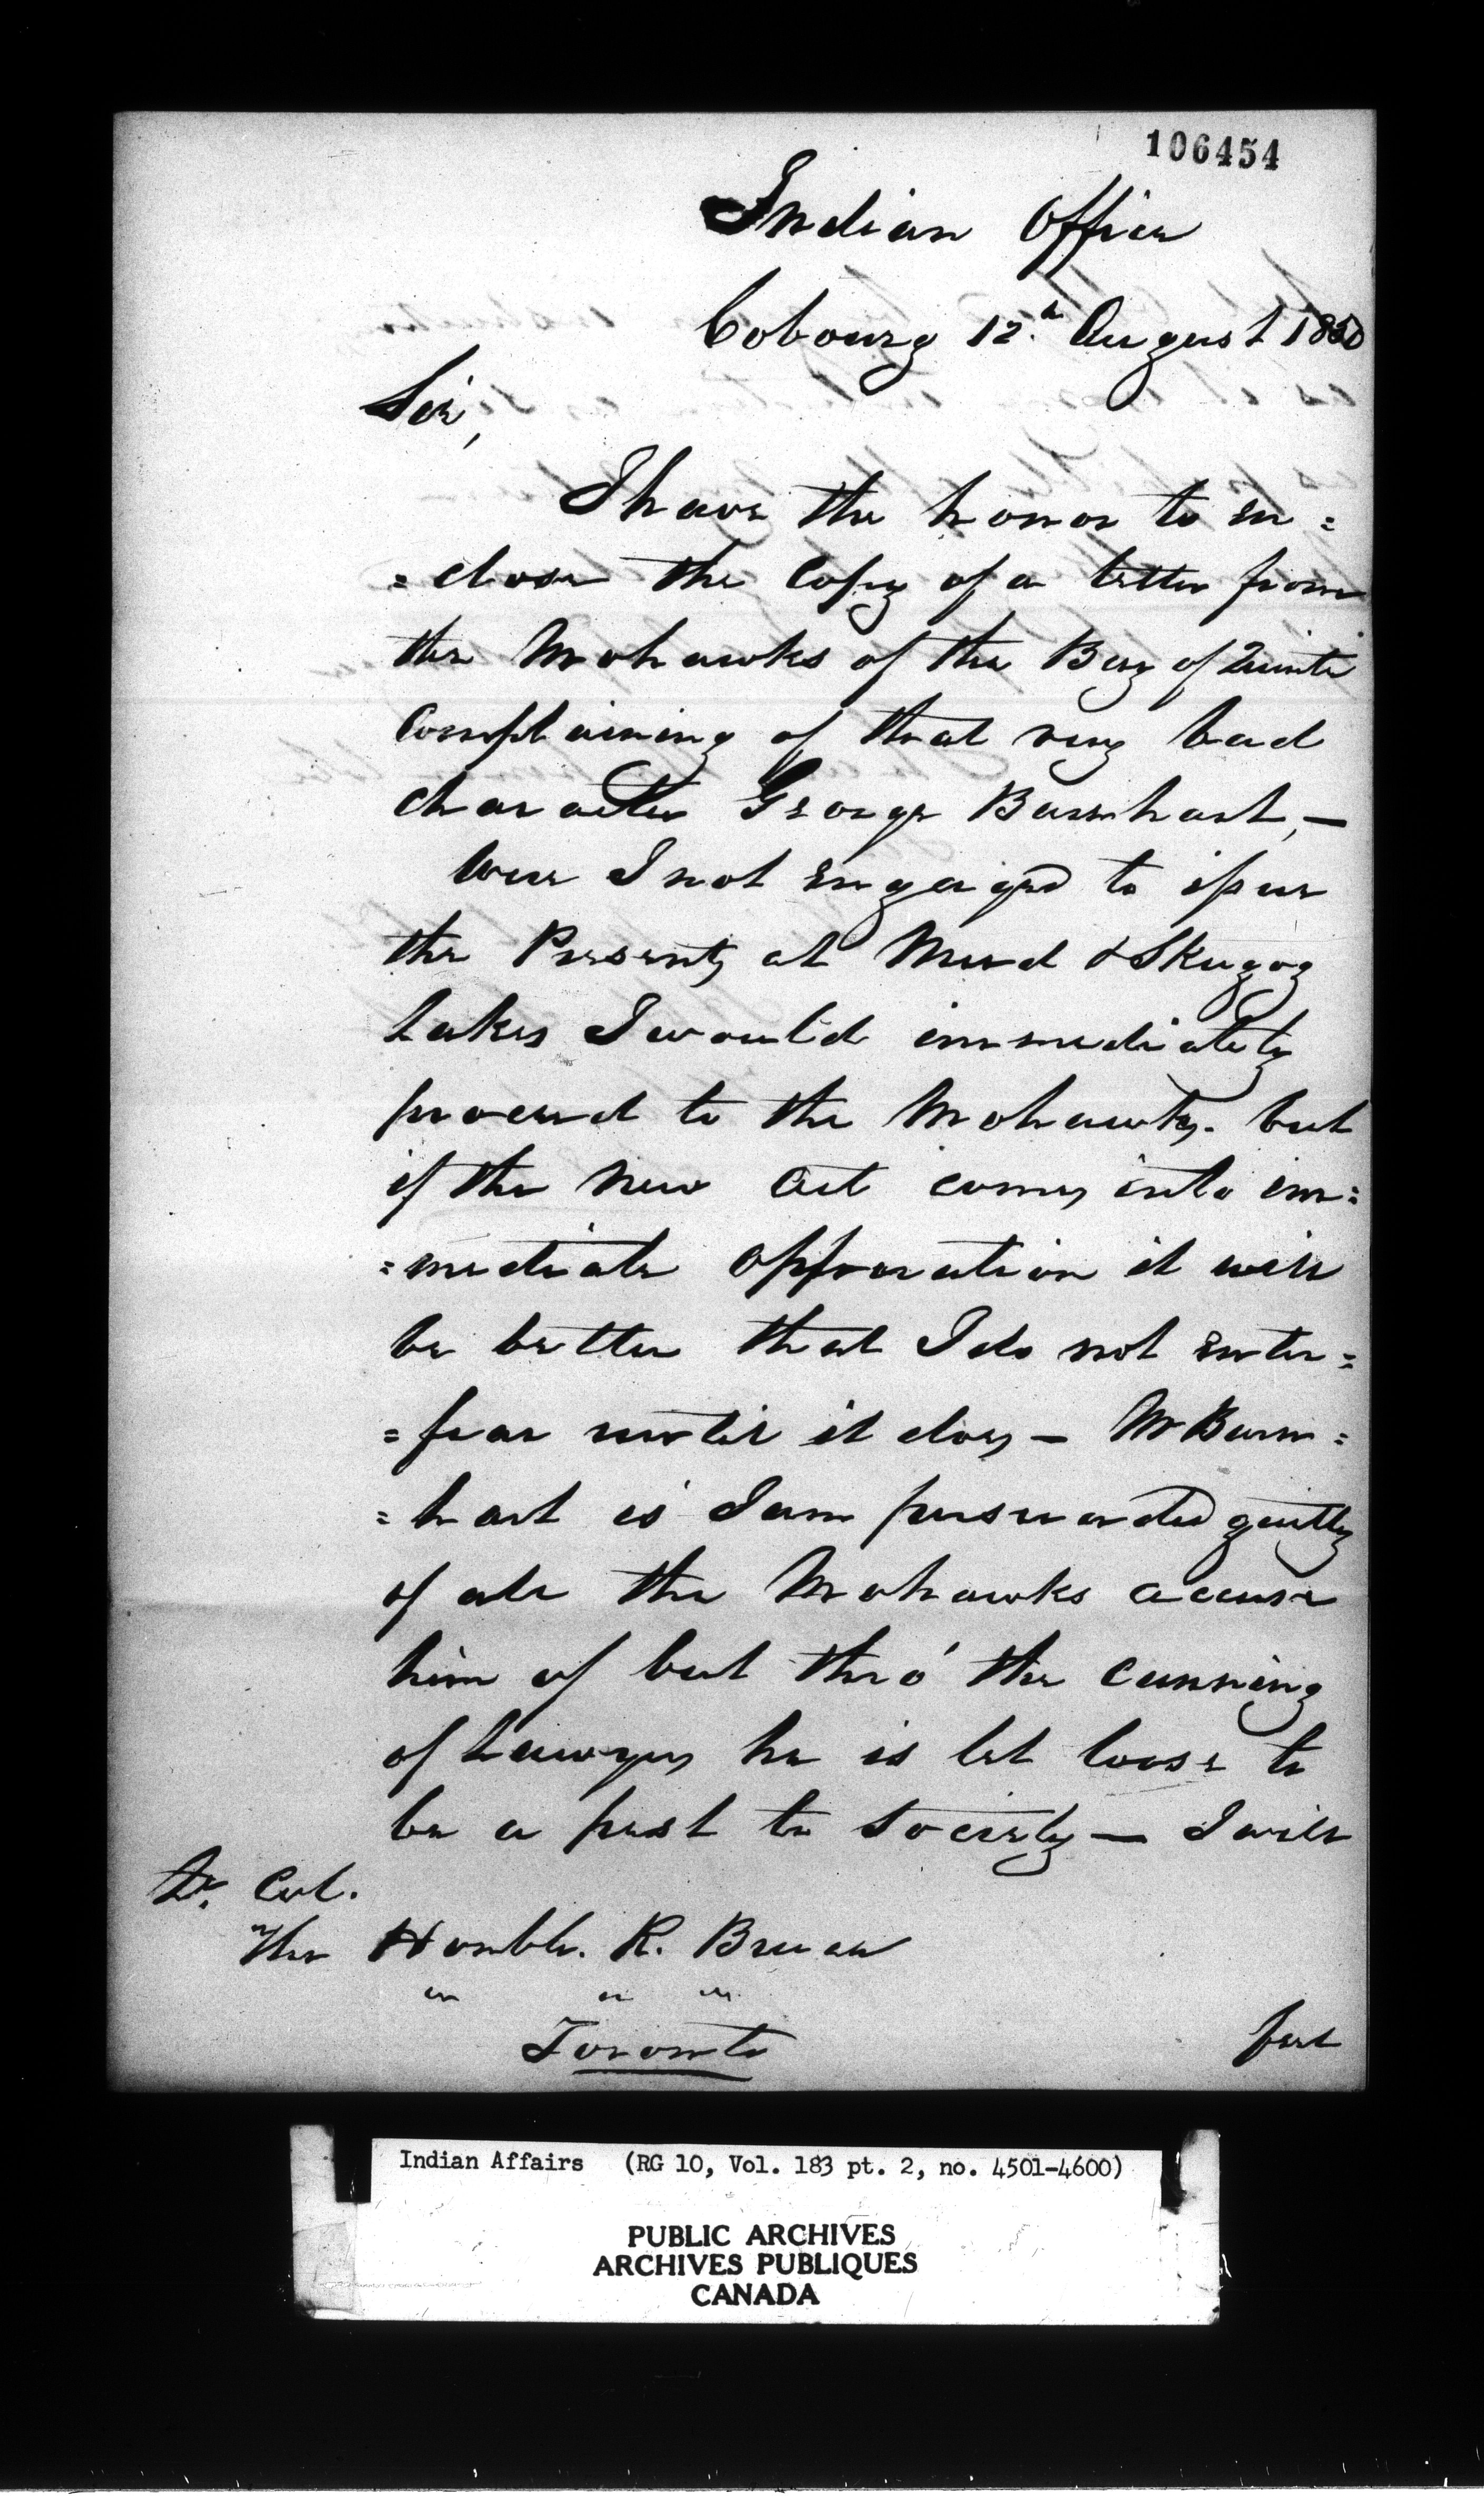 106454
Indian Office
Cobourg 12.th August 1850
Sir,
I have the honor to en=
=close the Copy of a letter from
the Mohawks of the Bay of Quinte
Complaining of that very bad
character George Barnhart, —
Were I not engaged to issue
the Presents at Mud & Skugog
Lakes I would immediately
proceed to the Mohawks. but
if the New Act comes into im=
=mediate opperation it will
be better that I do not enter=
=fear until it does — Mr Barn=
=hart is I am persuaded guilty
of all the Mohawks accuse
him of but thro' the cunning
of Lawyers he is let loose to
be a pest to Society — I will
Lt. Col.
The Honble. R. Bruce
" " "
Toronto
feel
Indian Affairs (RG 10, Vol. 183 pt. 2, no. 4501-4600)
PUBLIC ARCHIVES
ARCHIVES PUBLIQUES
CANADA